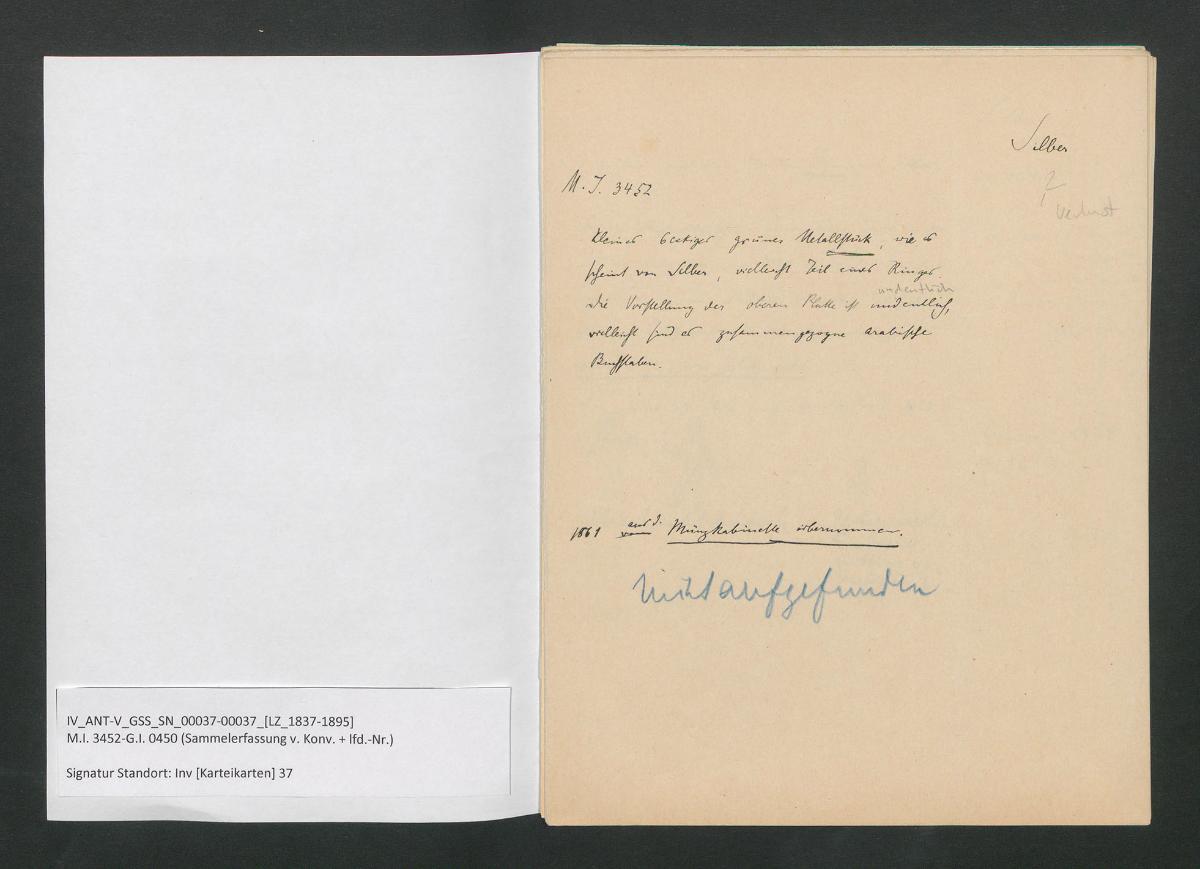 Silber
M. I. 3452
?
Verlust
Kleines 6eckiges grünes Metallstück, wie es
scheint von Silber, vielleicht Teil eines Ringes.
undeutlich
Die Vorstellung der oberen Platte ist undeutlich,
vielleicht sind es zusammengezogne arabische
Buchstaben.
aus d.
1869 vom Münzkabinette übernommen.
Nicht aufgefunden
IV_ANT-V_GSS_SN_00037-00037_[LZ_1837-1895]
M.I. 3452-G.I. 0450 (Sammelerfassung v. Konv. + lfd.-Nr.)
Signatur Standort: Inv [Karteikarten] 37